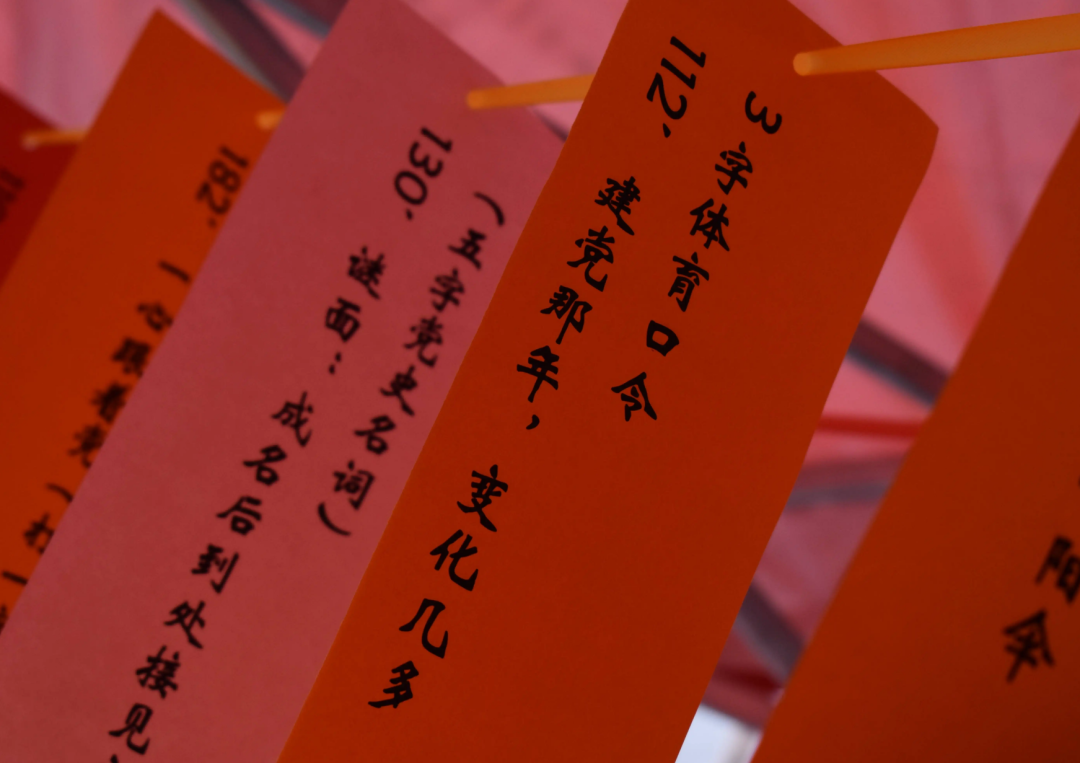 3字体育口令
112、建党那年，变化几多
（五字党史名词）
130、谜面：成名后到处接见
182、一心跟着党（
阳伞